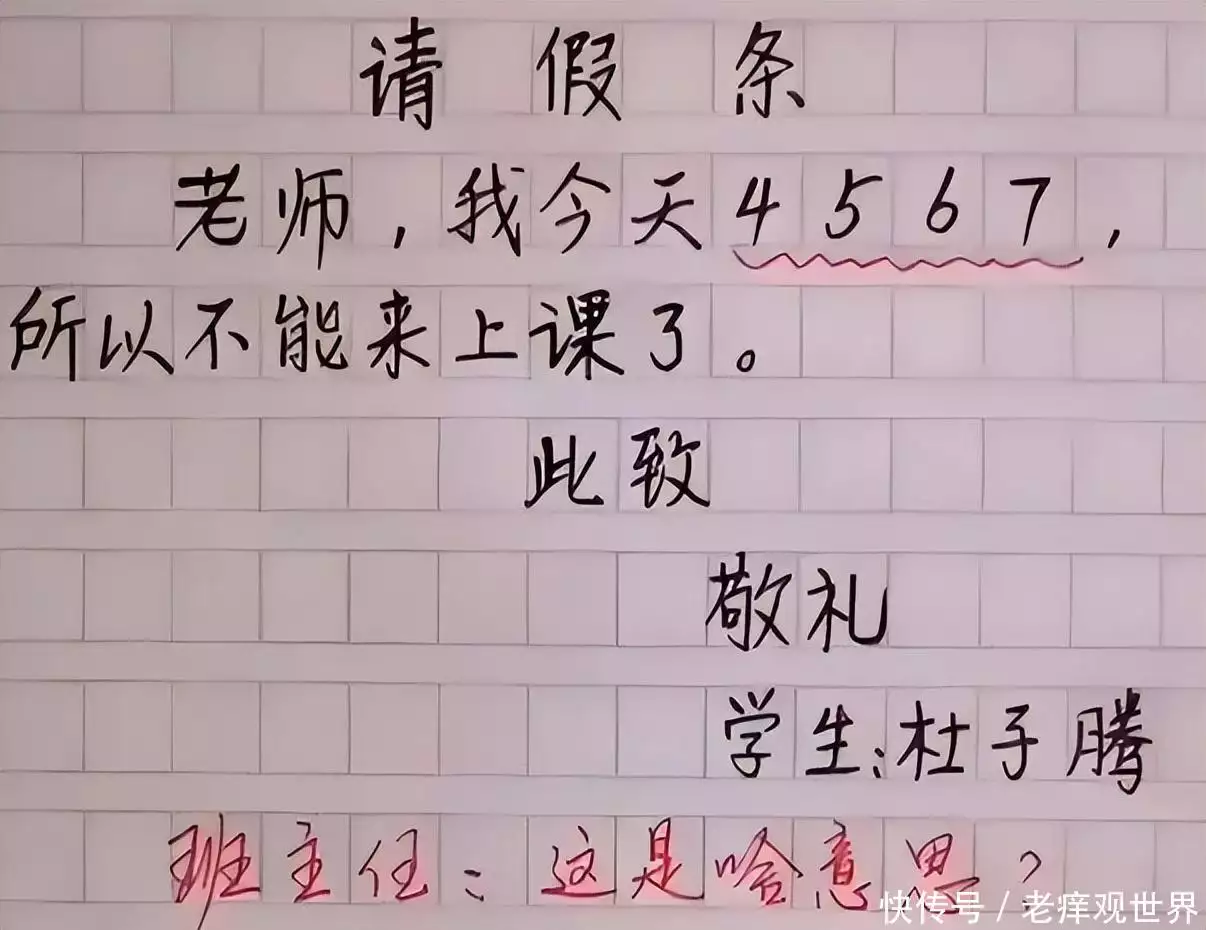 请假条
老师，我今天4567，
所以不能来上课了。
此致
敬礼
学生：杜子腾
班主任：这是啥意思？
快传号／老痒观世界